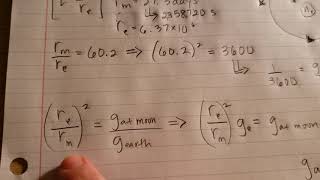 T_m = 27.3 days
↳ 2358720 s
r_e = 6.37×10^6
r_m/r_e = 60.2 ⇒ (60.2)^2 = 3600
↳ 1/3600
(r_e/r_m)^2 = g_at moon/g_earth ⇒ (r_e/r_m)^2 g_e = g_at moon
g_a